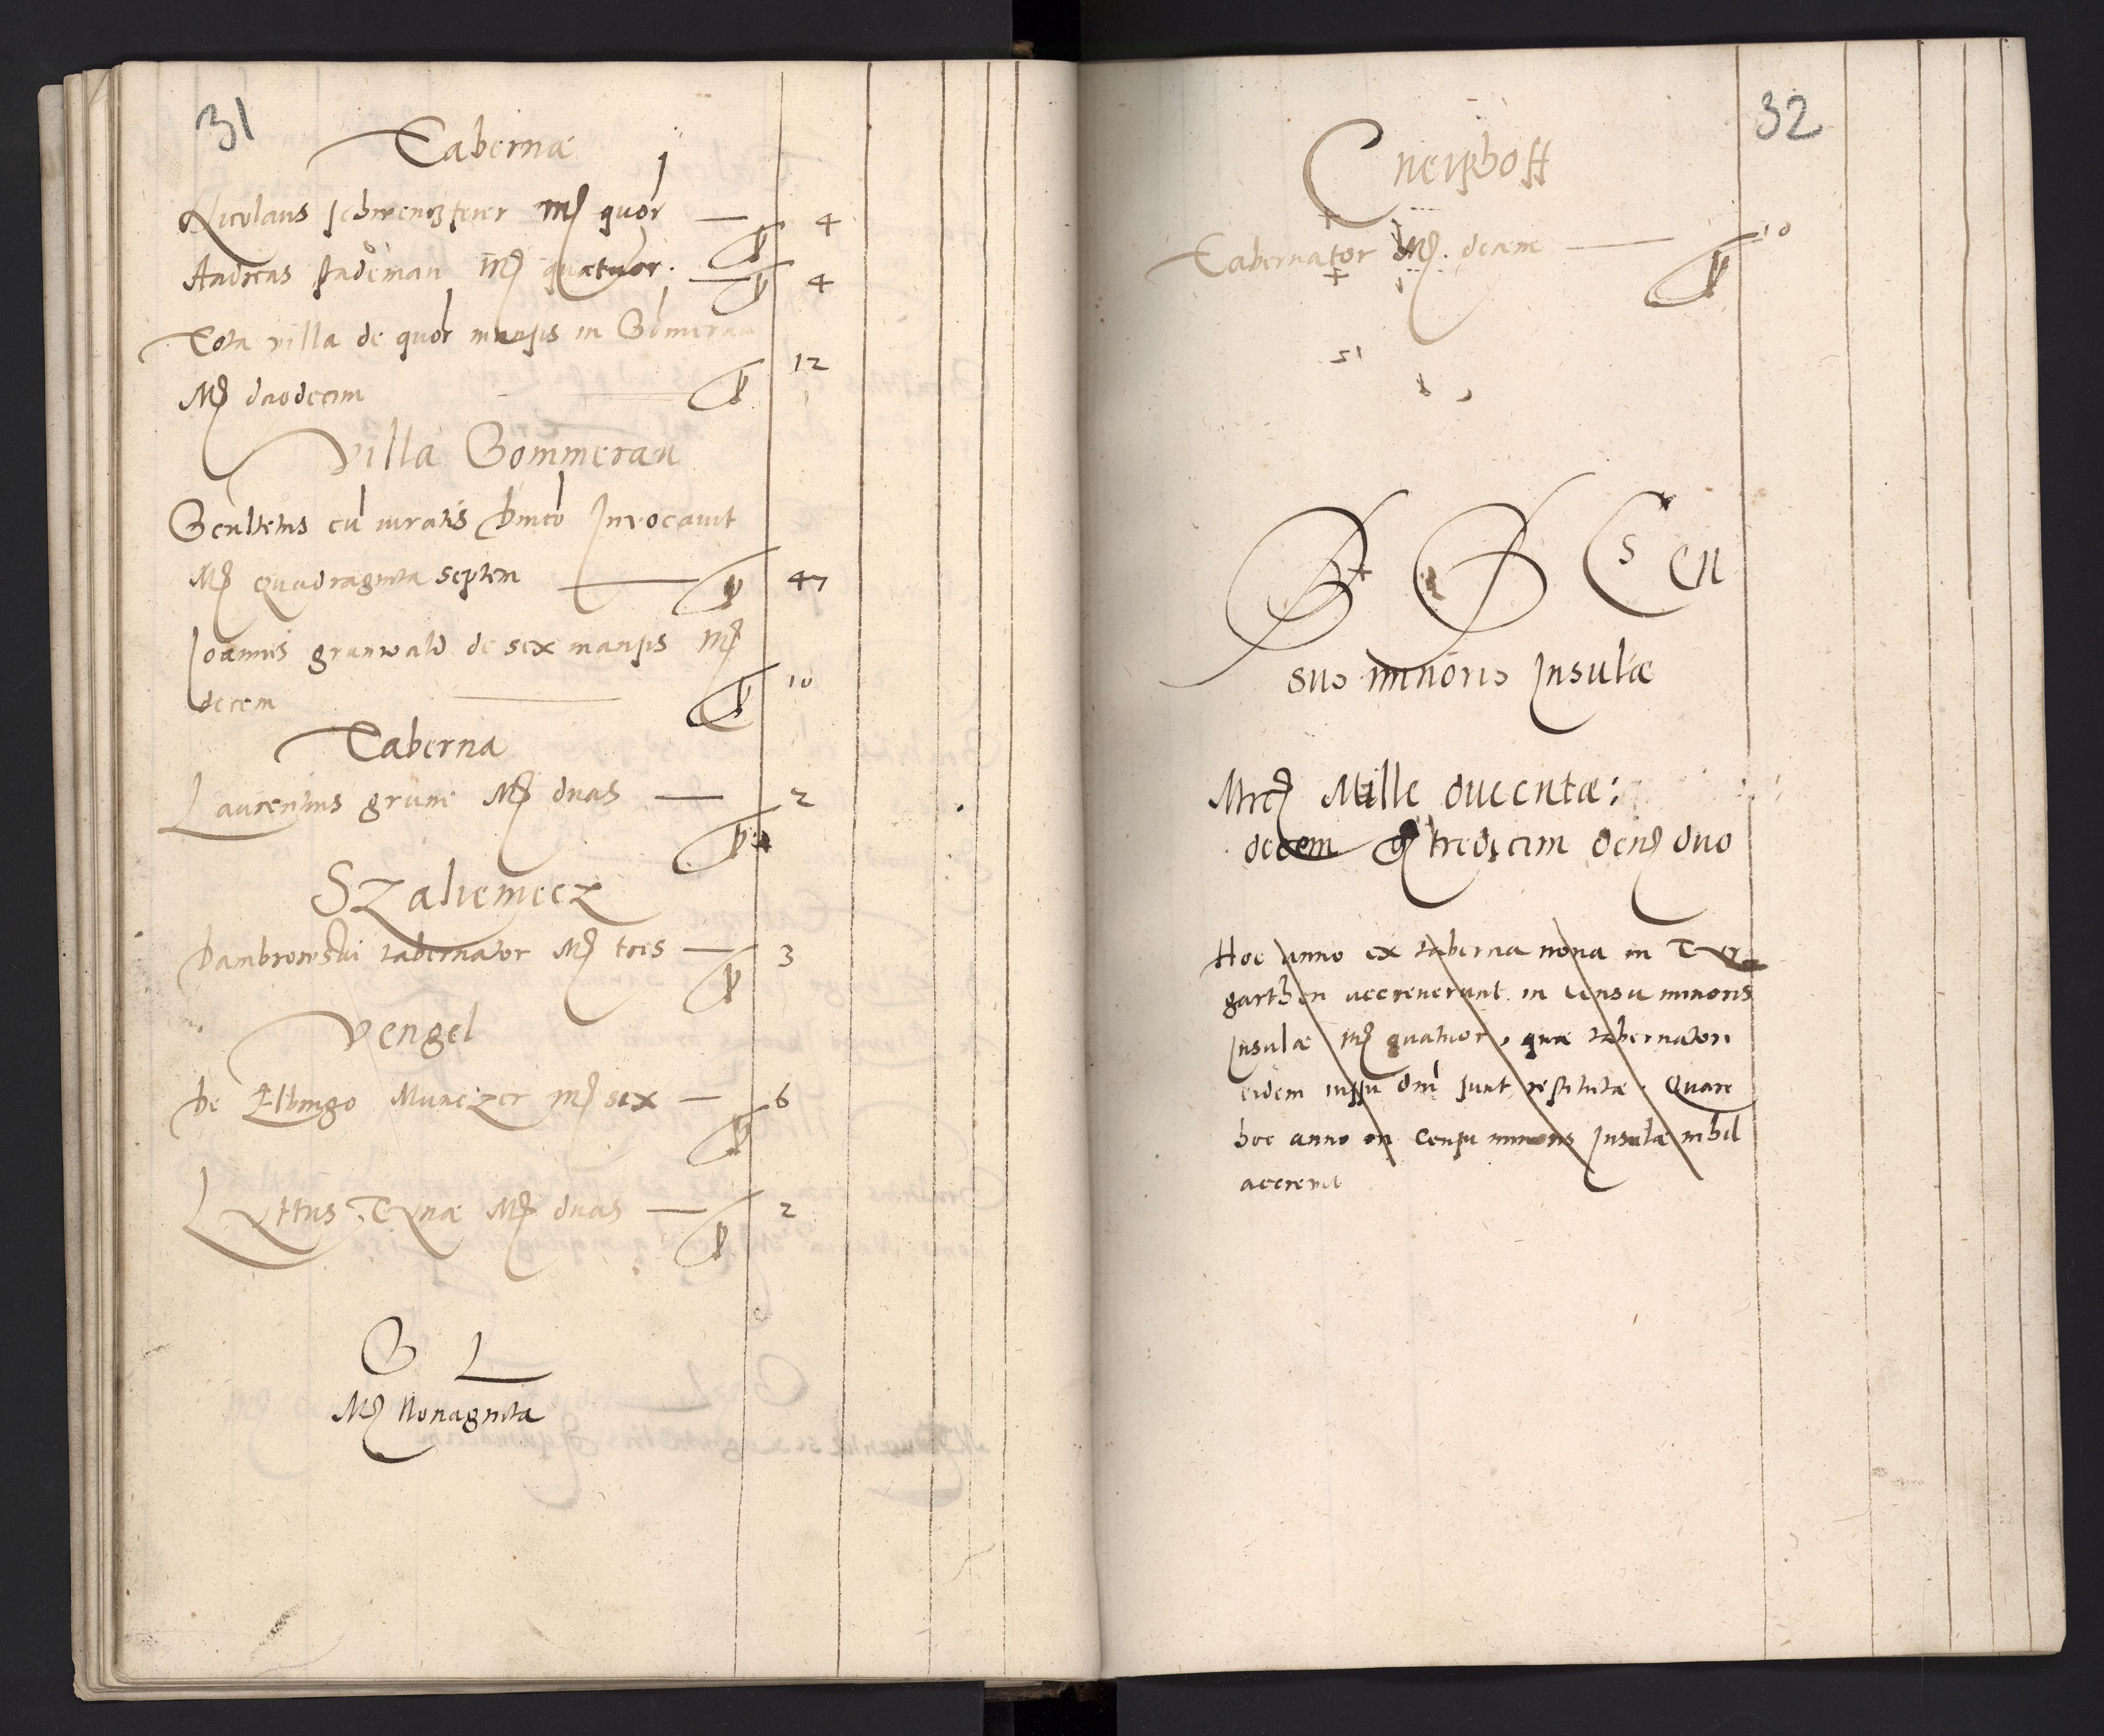 31
Tabernæ
Nicolaus schwenczfeier Mrc quor — 4
Andreas stademan Mrc quatuor. — 4
Tota villa de quor mansis in Gomerau
Mrc duodecim 12
Villa Gommerau
Scultetus cu iuratis pmto Invocavit
Mrc Quadraginta septem — 47
Joannes grunwald de sex mansis Mrc
decem — 10
Taberna
Laurentius grune Mrc duas — 2
Szaliemecz
Dambrowski tabernator Mrc tres — 3
Vengel
De Elbingo Munczer Mrc sex — 6
Lyttus Tynæ Mrc duas — 2
S L
Mrc Nonaginta
32
Cneiphoff
Tabernator Mrc. decem — 10
S S Cen
sus minoris Insulæ
Mrc Mille ducentæ:
decem g tredecim den duo
Hoc anno ex taberna nova in Tyr
garthen accreverunt in censu minoris
Insulæ Mrc quatuor, quæ tabernatori
eidem iussu dni sunt restitutæ. Quare
hoc anno in censu minoris Insulæ nihil
accrevit